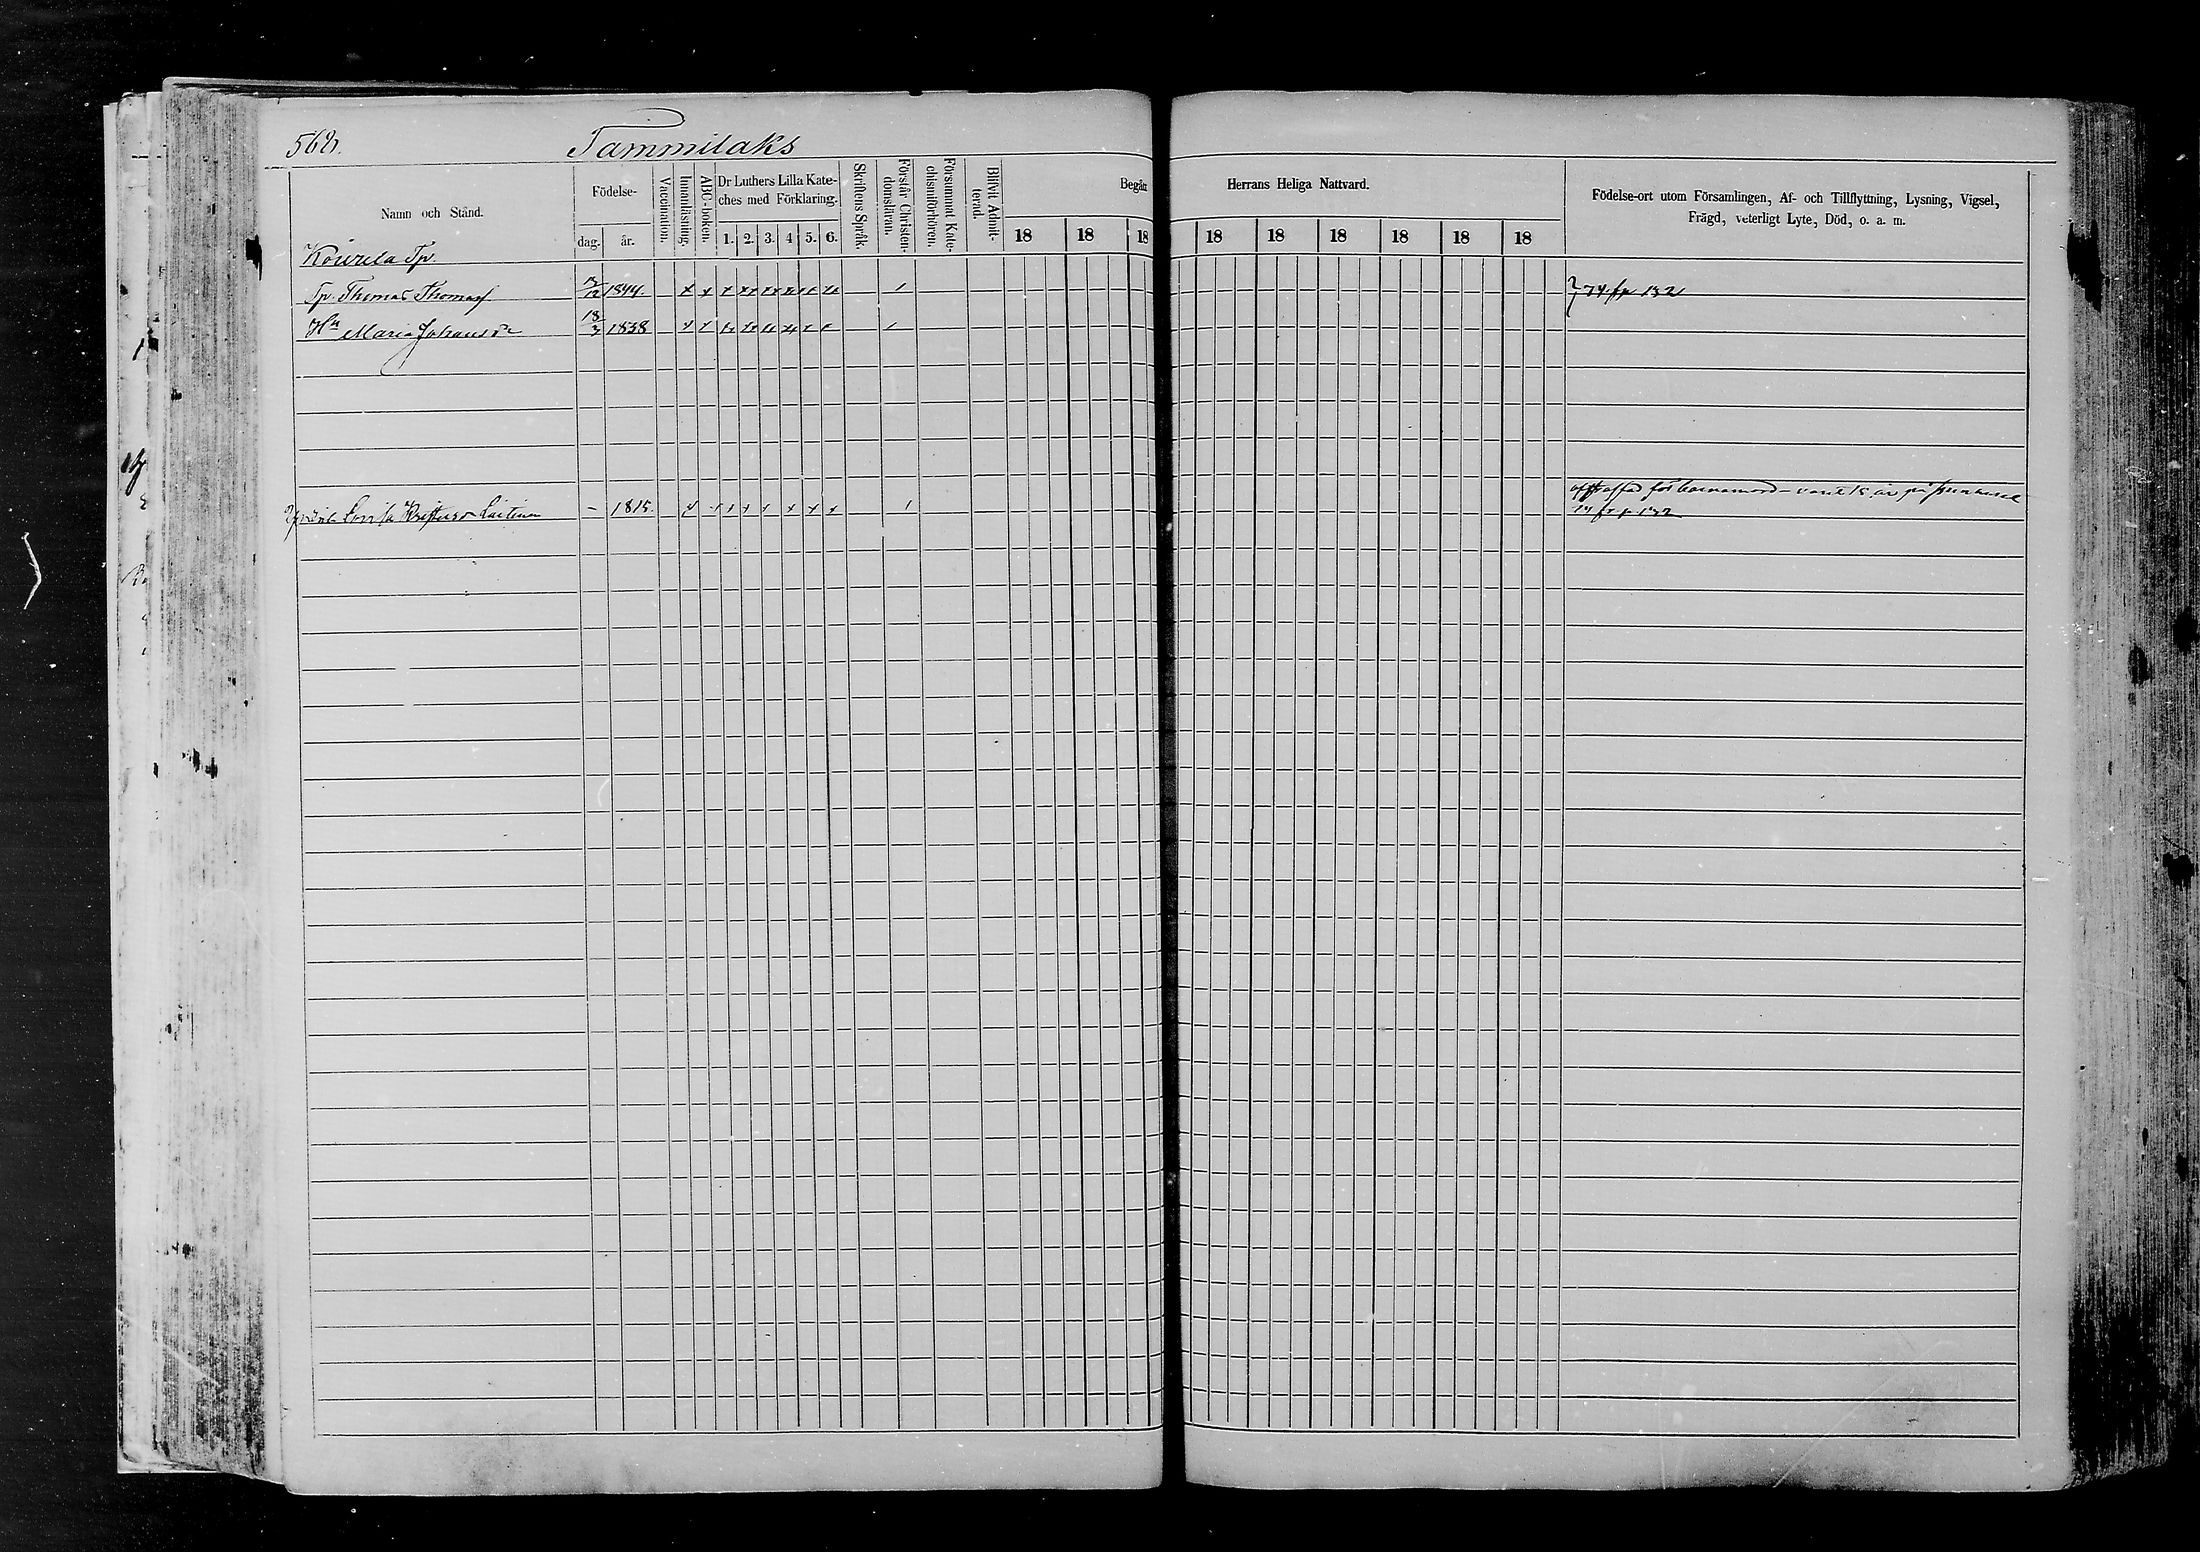 562.
Tammilaks
Namn och Stånd.
Födelse-
dag. år.
Vaccination.
Innanläsning.
ABC-boken.
Dr Luthers Lilla Kate-
ches med Förklaring.
1. 2. 3. 4. 5. 6.
Skriftens Språk.
Förstår Christen-
domsläran.
Försummat Kate-
chismiförhören.
Blifvit Admit-
terad.
Begått Herrans Heliga Nattvard.
18 18 18 18 18 18 18 18 18
Födelse-ort utom Församlingen, Af- och Tillflyttning, Lysning, Vigsel,
Frägd, veterligt Lyte, Död, o. a. m.
Tp.
Tp. Thomas Thomasf 1844. 74 fr 132
Hu Maria Johansdr 18/3 1838
Lovisa Laitinen - 1815. för barnamord - varit 15 år på
74 fr p 132